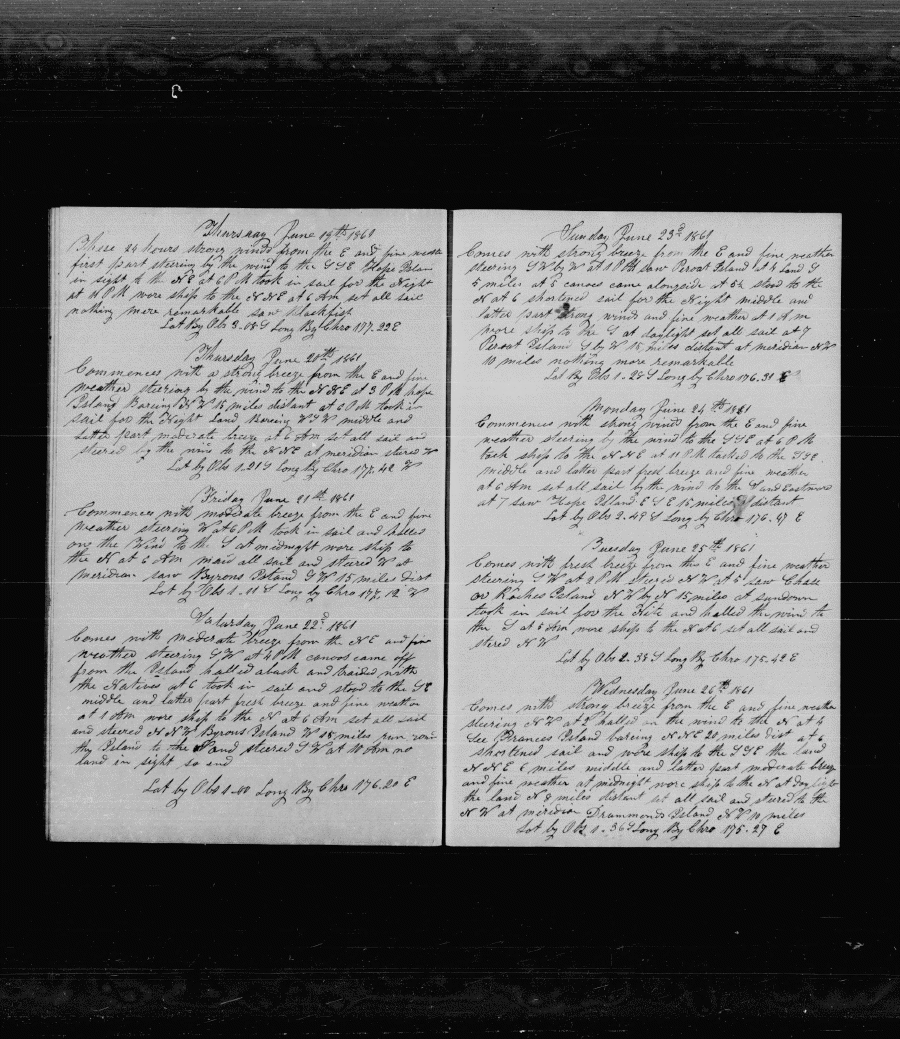 Thursday June 19th 1861
These 24 hours strong winds from the E and fine weather
first part steering by the wind to the SSE Hope Island
in sight to the NE at 6 PM took in sail for the Night
at 11 PM wore ship to the NNE at 6 Am set all sail
nothing more remarkable saw blackfish
Lat By Obs 3.08 S Long By Chro 177.22 E
Thursday June 20th 1861
Commences with a strong breeze from the E and fine
weather steering by the wind to the NNE at 3 PM hope
Island Bareing NW 15 miles distant at 6 PM took in
sail for the Night Land bareing WSW middle and
latter part moderate breeze at 6 Am set all sail and
steered by the wind to the NE at meridian stered W
Lat by Obs 1.21 S Long by Chro 177.42 W
Friday June 21st 1861
Commences with moderate breeze from the E and fine
weather steering W at 6 PM took in sail and halled
on the Wind to the S at midnight wore ship to
the N at 6 Am maid all sail and steered W at
meridian saw Byrons Island SW 15 miles dist
Lat by Obs 1.11 S Long by Chro 177.12 W
Saturday June 22d 1861
Comes with moderate breeze from the NE and fine
weather steering SW at 4 PM canoos came off
from the Island halled aback and traided with
the Natives at 6 took in sail and stood to the SE
middle and latter part fresh breeze and fine weather
at 1 Am wore ship to the N at 6 Am set all sail
and steered NNW Byrons Island W 18 miles run
thy Island to the S and steered SW at 10 Am no
land in sight so end
Lat by Obs 1.00 Long By Chro 176.20 E
Sunday June 23d 1861
Comes with strong breeze from the E and fine weather
steering SW by W at 1 PM saw Peroat Island at 4 land S
5 miles at 5 canoes came alongside at 5½ stood to the
N at 6 shortened sail for the Night middle and
latter part strong winds and fine weather at 1 Am
wore ship to the S at daylight set all sail at 7
Peroat Island S by W 15 miles distant at meridian NW
10 miles nothing more remarkable
Lat By Obs 1.25 S Long by Chro 176.31 E
Monday June 24th 1861
Commences with strong winds from the E and fine
weather steering by the wind to the SSE at 6 PM
took ship to the NNE at 11 PM tacked to the SSE
middle and latter part fresh breeze and fine weather
at 6 Am set all sail by the wind to the S and Eastward
at 7 saw Hope Island E S E 15 miles distant
Lat by Obs 2.49 S Long by Chro 176.47 E
Tuesday June 25th 1861
Comes with fresh breeze from the E and fine weather
steering SW at 2 PM steered NW at 5 saw Chase
or Roches Island NW by N 15 miles at sundown
took in sail for the Nite and halled the wind to
the S at 5 Am wore ship to the N at 6 set all sail and
stered NW
Lat by Obs 2.38 S Long By Chro 175.42 E
Wednesday June 26th 1861
Comes with strong breeze from the E and fine weather
steering NW at 2 halled in the wind to the N at 4
See Francis Island bareing NNE 20 miles dist at 6
shortened sail and wore ship to the SSE the land
NNE 6 miles middle and latter part moderate breeze
and fine weather at midnight wore ship to the N at day light
the land N 8 miles distant set all sail and steered to the
NW at meridian Drummonds Island NW 10 miles
Lat by Obs 1.36 S Long By Chro 175.27 E